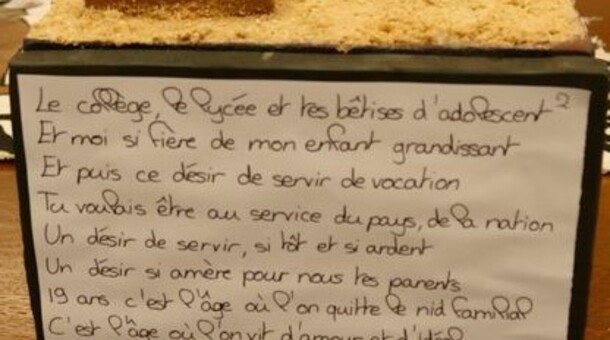 Le collège, le lycée et tes bêtises d'adolescent ²
Et moi si fière de mon enfant grandissant
Et puis ce désir de servir de vocation
Tu voulais être au service du pays, de la nation
Un désir de servir, si tôt et si ardent
Un désir si amère pour nous tes parents
19 ans c'est l'âge où l'on quitte le nid familial
C'est l'âge où l'on vit d'amour et d'idéal